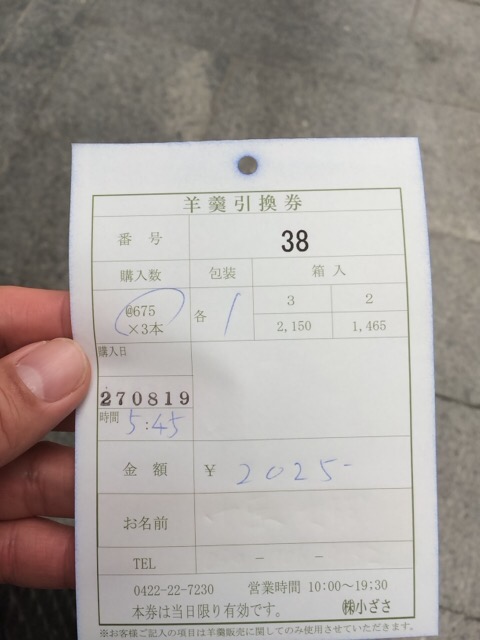 羊羹引換券
番号 38
購入数 包装 箱入
@675 ×3本 各 1 3 2
2,150 1,465
購入日
270819
時間 5:45
金額 ¥ 2025-
お名前
TEL － －
0422-22-7230 営業時間 10:00～19:30
本券は当日限り有効です。 ㈱小ざさ
※お客様ご記入の項目は羊羹販売に関してのみ使用させていただきます。